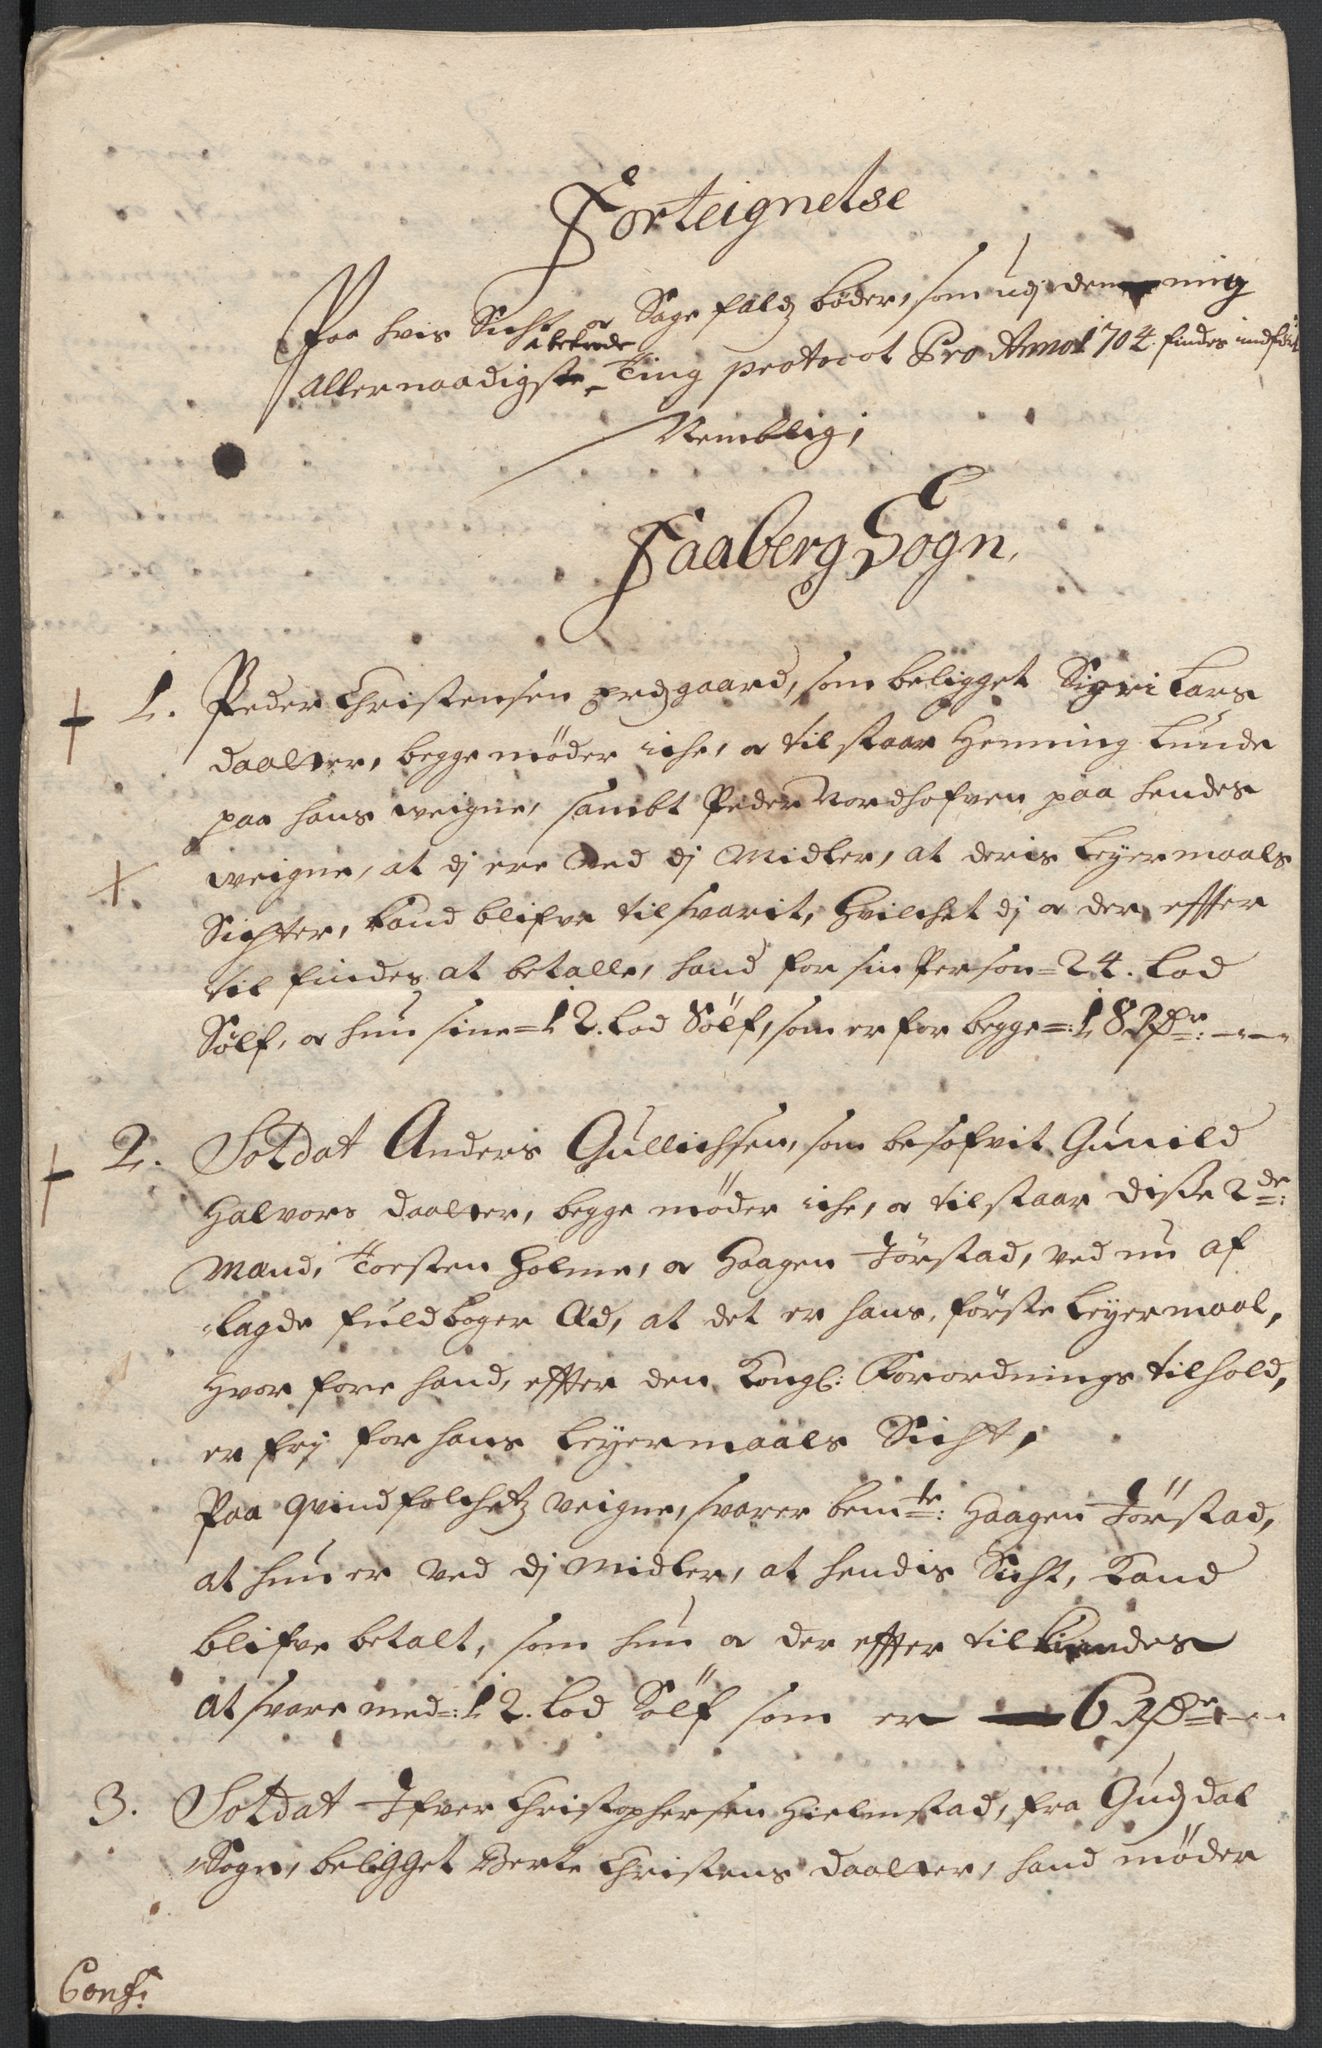 Forteignelse
Paa hvis Sicht og Sagefaldz bøder, som udj den mig
allernaadigste betrode Ting protocol Pro Anno 1704. findes indført
Nemblig;
Faaberg Sogn,
1. Peder Christensen gaard, som beligget Sigri Lars
daatter, begge møder iche, og tilstaar Henning Lunde
paa hans weigne, sambt Peder Nordhofven paa hendes
weigne, at dj ere ved dj Midler, at deris Leyermaals
Sichter, kand blifve tilsvarit, Hvilchet dj og der effter
til findes at betalle, hand for sin Person = 24. Lod
Sølf, og hun sine = 12. Lod Sølf, som er for begge =: 18 Rdr:
2. Soldat Anders Gullichsen, som besofvit Gunild
Halvors daatter, begge møder iche, og tilstaar disse 2de:
Mand, Torsten Holme, og Haagen Jørstad, ved nu af
lagde fuld boger Æd, at det er hans første Leyermaal,
Hvor fore hand, effter den Kongl: Forordnings tilhold,
er frj for hans Leyermaals Sicht,
Paa qvindfolchetz veigne, svarer bemte: Haagen Jørstad,
at hun er ved dj midler, at hendis Sicht, kand
blifve betalt, som hun og der effter tilkiendes
at svare med: 12. Lod Sølf som er 6 Rdr
3. Soldat Ifver Christophersen Hielmstad, fra Gudzdal
Sogn, beligget Berte Christens daatter, hand møder
Conf: